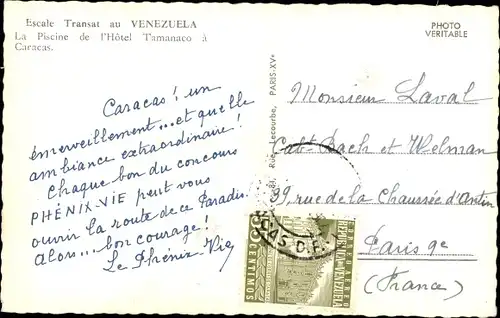 Escale Transat au VENEZUELA
La Piscine de l'Hôtel Tamanaco à
Caracas.
Caracas! un
émerveillement... et quelle
ambiance extraordinaire!
Chaque bon du concours
PHÉNIX-VIE peut vous
ouvrir la route de ce Paradis.
Alors... bon courage!
Le Phénix-Vie
Rue Lecourbe, PARIS-XVe
PHOTO
VERITABLE
Monsieur Laval
Cabt Bach et Welman
39, rue de la Chaussée d'Antin
Paris 9e
(France)
CAS D.F.
CORREO AEREO
E.E.U.U. DE VENEZUELA
CENTIMOS